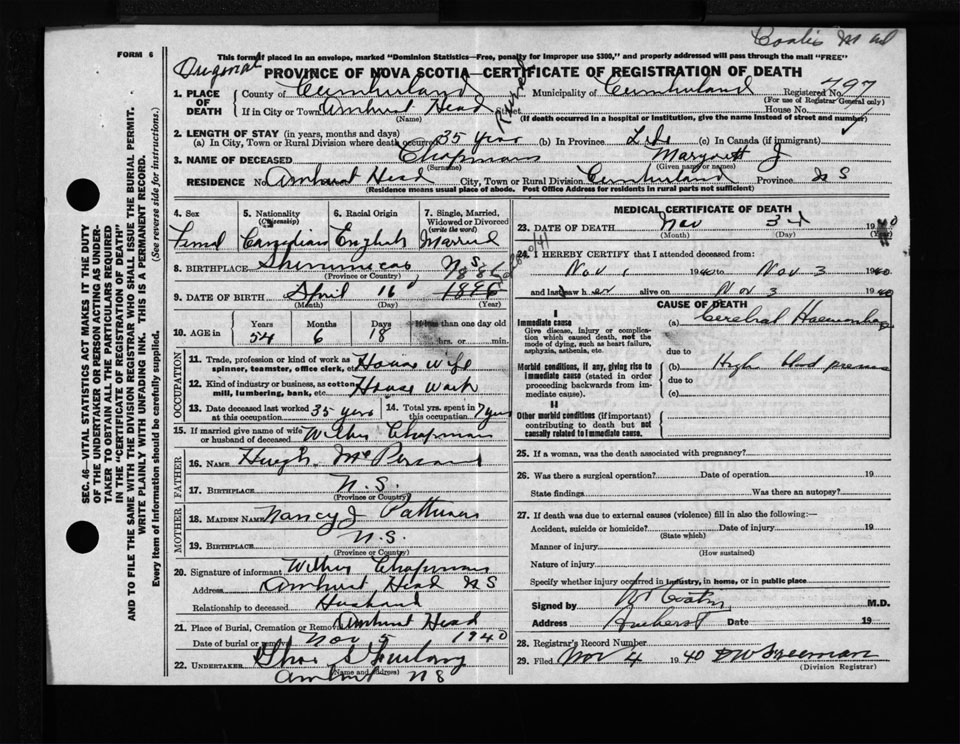 Coates M d
FORM 6
This form if placed in an envelope, marked "Dominion Statistics—Free, penalty for improper use $300," and properly addressed will pass through the mail "FREE"
Original
PROVINCE OF NOVA SCOTIA—CERTIFICATE OF REGISTRATION OF DEATH
1. PLACE OF DEATH County of Cumberland Municipality of Cumberland Registered No. 797
(For use of Registrar General only)
If in City or Town Amherst Head (Name) Street Rural House No.
(If death occurred in a hospital or institution, give the name instead of street and number)
2. LENGTH OF STAY (in years, months and days)
(a) In City, Town or Rural Division where death occurred 35 years (b) In Province Life (c) In Canada (if immigrant)
3. NAME OF DECEASED Chapman (Surname) Margarett J (Given name or names)
RESIDENCE No. Amherst Head City, Town or Rural Division Cumberland Province N S
(Residence means usual place of abode. Post Office Address for residents in rural parts not sufficient)
4. Sex 5. Nationality (Citizenship) 6. Racial Origin 7. Single, Married, Widowed or Divorced (write the word)
Canadian English Married
8. BIRTHPLACE N S
(Province or Country)
1886
9. DATE OF BIRTH April 16
(Month) (Day) (Year)
10. AGE in Years Months Days If less than one day old
54 6 18 hrs. or min.
OCCUPATION
11. Trade, profession or kind of work as spinner, teamster, office clerk, etc. House Wife
12. Kind of industry or business, as cotton mill, lumbering, bank, etc. House Work
13. Date deceased last worked at this occupation 35 years 14. Total yrs. spent in this occupation 7 years
15. If married give name of wife or husband of deceased Chapman
FATHER
16. Name Hugh
17. Birthplace N. S.
(Province or Country)
MOTHER
18. Maiden Name Nancy J
19. Birthplace N. S.
(Province or Country)
20. Signature of informant Chapman
Address Amherst Head N S
Relationship to deceased Husband
21. Place of Burial, Cremation or Removal Amherst Head
Date of burial or Nov 5 1940
22. UNDERTAKER S Furlong
(Name and address)
Amherst N S
MEDICAL CERTIFICATE OF DEATH
23. DATE OF DEATH Nov 3rd 1940
(Month) (Day) (Year)
24. I HEREBY CERTIFY that I attended deceased from:
Nov 1 1940 to Nov 3 1940
and last saw her alive on Nov 3 1940
CAUSE OF DEATH
I
Immediate cause
Give disease, injury or complication which caused death, not the mode of dying, such as heart failure, asphyxia, asthenia, etc.
(a) Cerebral Haemorrhage
due to
Morbid conditions, if any, giving rise to immediate cause (stated in order proceeding backwards from immediate).
(b) High blood pressure
due to
(c)
II
Other morbid conditions (if important) contributing to death but not causally related to immediate cause.
25. If a woman, was the death associated with pregnancy?
26. Was there a surgical operation? Date of operation 19
State findings Was there an autopsy?
27. If death was due to external causes (violence) fill in also the following:—
Accident, suicide or homicide? Date of injury 19
(State which)
Manner of injury
(How sustained)
Nature of injury
Specify whether injury occurred in industry, in home, or in public place
Signed by Coates M.D.
Address Amherst Date 19
28. Registrar's Record Number
29. Filed Nov 4 1940 Freeman
(Division Registrar)
SEC. 46—VITAL STATISTICS ACT MAKES IT THE DUTY
OF THE UNDERTAKER OR PERSON ACTING AS UNDERTAKER TO OBTAIN ALL THE PARTICULARS REQUIRED
IN THE "CERTIFICATE OF REGISTRATION OF DEATH"
AND TO FILE THE SAME WITH THE DIVISION REGISTRAR WHO SHALL ISSUE THE BURIAL PERMIT.
WRITE PLAINLY WITH UNFADING INK. THIS IS A PERMANENT RECORD.
Every item of information should be carefully supplied. (See reverse side for instructions.)